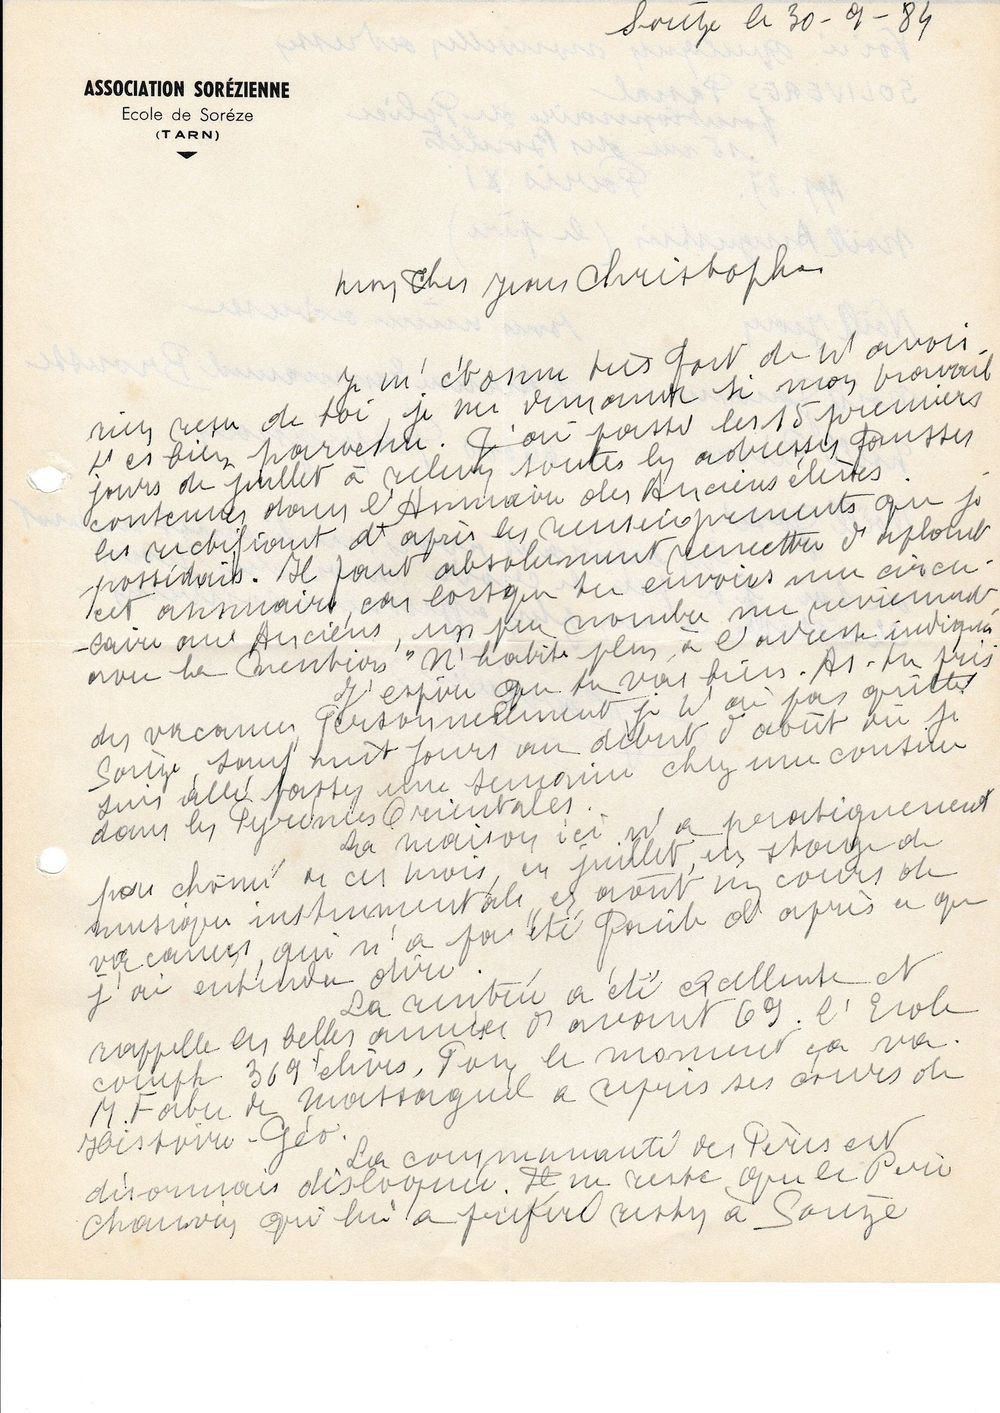 Sorèze le 30-9-84
ASSOCIATION SORÉZIENNE
Ecole de Soréze
(TARN)
Mon Cher Jean Christophe
Je m'étonne très fort de n'avoir
rien reçu de toi, je me demande si mon travail
t'es bien parvenu. J'ai passé les 15 premiers
jours de juillet à relever toutes les adresses fausses
contenues dans l'Annuaire des Anciens élèves
les rectifiant d'après les renseignements que je
possédais. Il faut absolument remettre d'aplomb
cet annuaire, car lorsque tu envoies une circu-
-laire aux Anciens, un peu nombre me reviennent
avec la mention "N'habite plus à l'adresse indiquée
J'espère que tu vas bien. As-tu pris
des vacances, Personnellement je n'ai pas quitté
Sorèze, sauf huit jours au début d'août où je
suis allé passer une semaine chez une cousine
dans les Pyrénées Orientales.
La maison ici n'a pratiquement
pas chômé de ces mois, en juillet, un stage de
musique instrumentale, en août un cours de
vacances, qui n'a pas été facile d'après ce que
j'ai entendu dire.
La rentrée a été excellente et
rappelle les belles années d'avant 69. l'Ecole
compte 369 élèves, Pour le moment ça va.
M. Fabre de Massaguel a repris ses cours de
Histoire-Géo.
La communauté des Pères est
désormais disloquée. Il ne reste que le Père
Chauvin qui lui a préféré rester à Sorèze